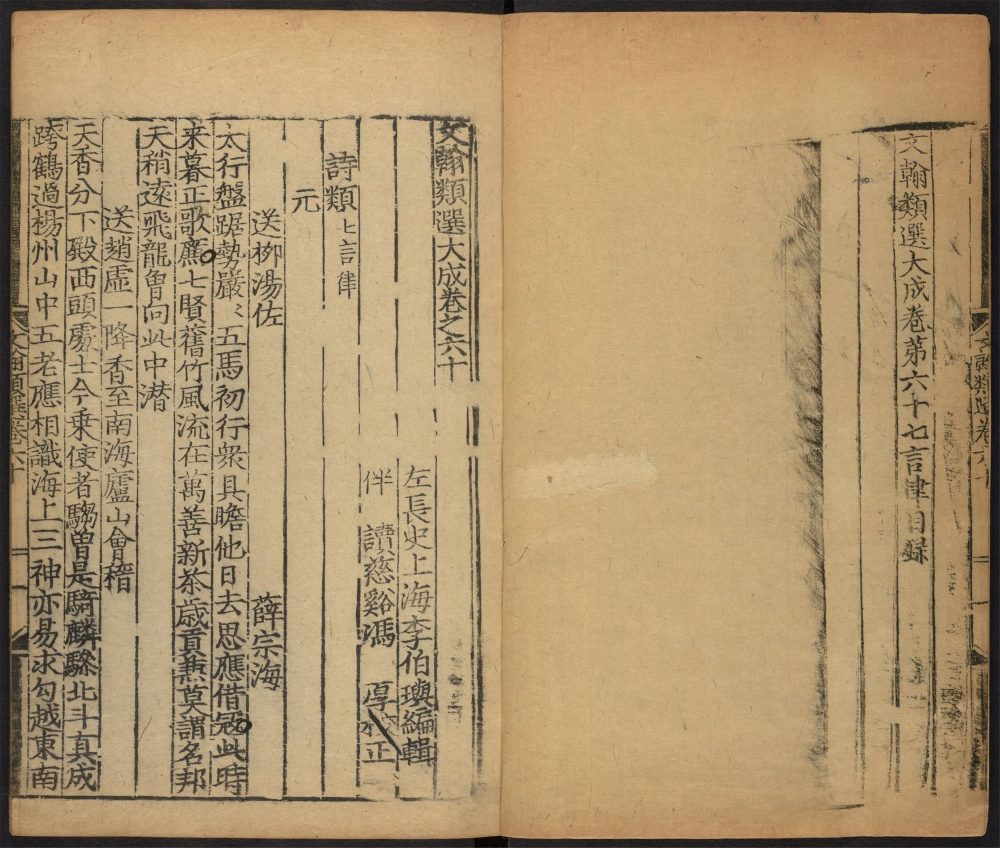 文翰類選大成卷第六十七言律目録
文翰類選大成卷之六十
左長史上海李伯璵編輯
伴讀慈谿馮厚校正
詩類七言律
元
送柳湯佐
薛宗海
太行盤踞勢巖〻五馬初行衆具瞻他日去思應借冦此時
来暮正歌廉七賢舊竹風流在萬善新茶歳貢兼莫謂名邦
天稍遠飛龍曽向此中潜
送趙虚一降香至南海廬山會稽
天香分下殿西頭處士今乗使者騶曽是騎麟騄北斗真成
跨鶴過楊州山中五老應相識海上三神亦易求勾越東南